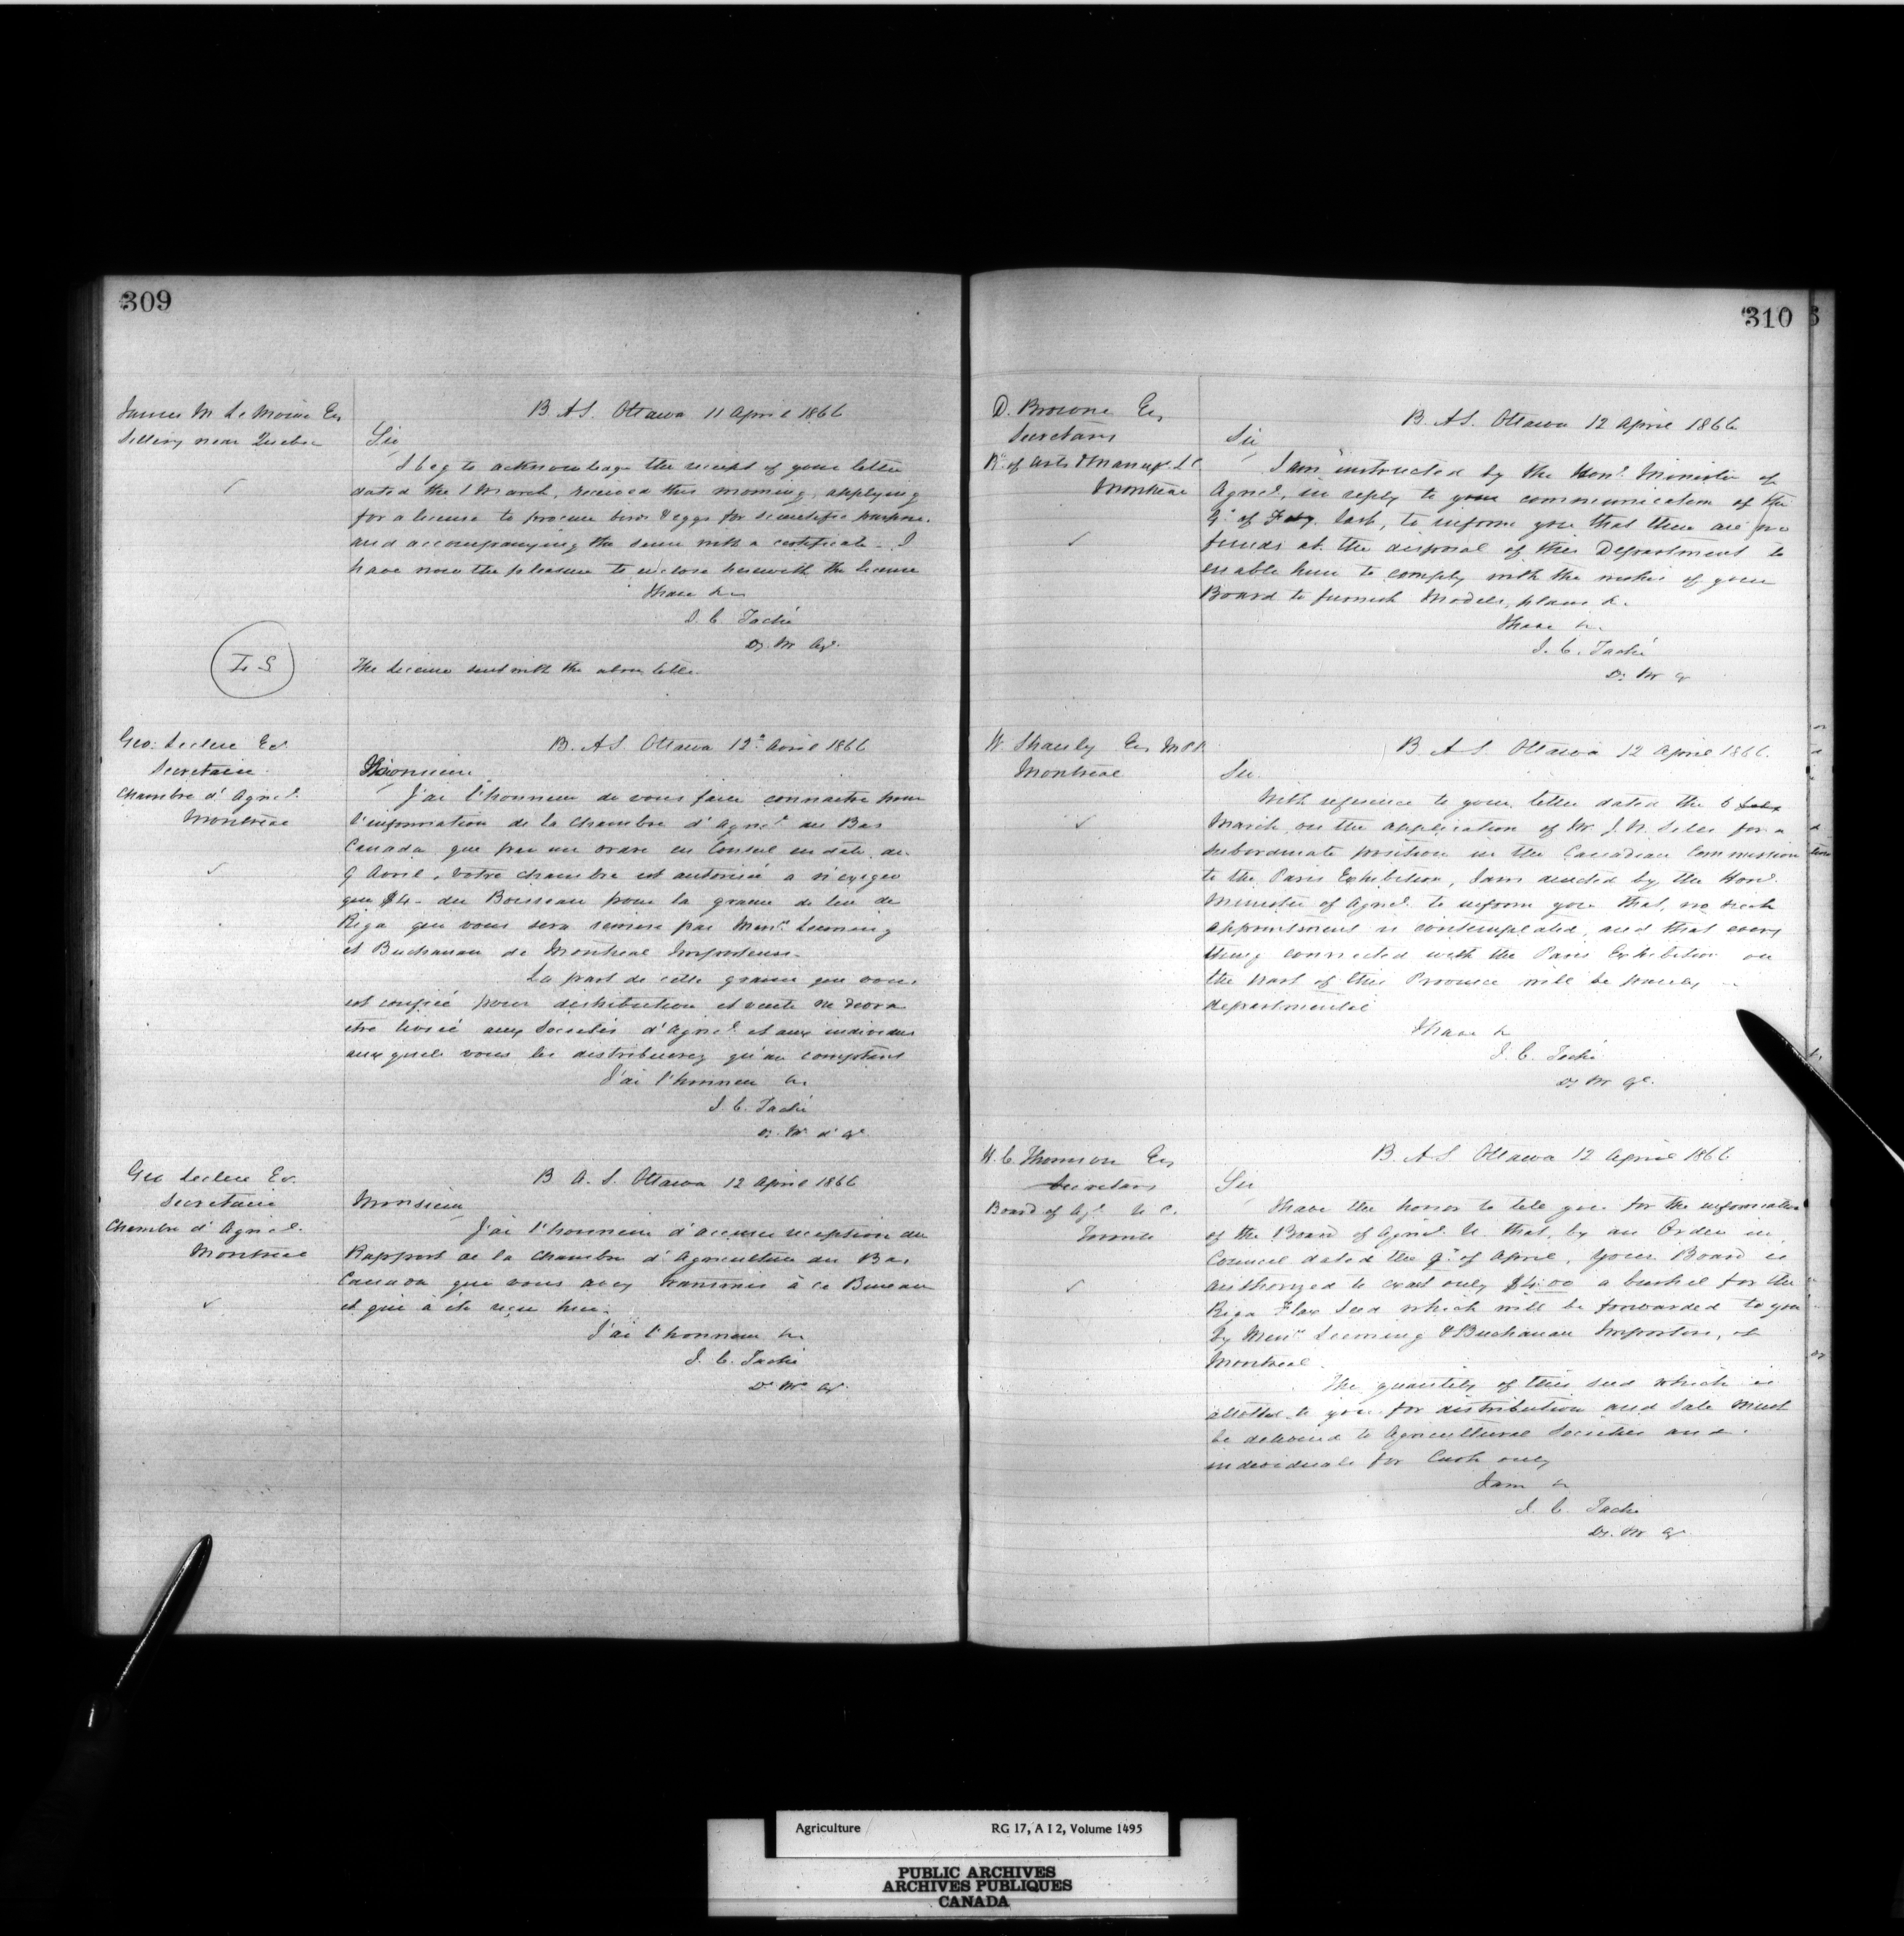 309
James M Le Moine Esq
Sillery near Quebec
B A S. Ottawa 11 April 1866
Sir
I beg to acknowledge the receipt of your letter
dated the 1 March, received this morning, applying
for a license to procure birds & eggs for scientific purpose.
and accompanying the same with a certificate - I
have now the pleasure to enclose herewith the license
I have &c
J. C. Taché
Dy. M Agr.
L S
The license sent with the above letter.
Geo: Leclere Ecr
Secretaire
Chambre d' Agricl.
Montreal
B. A S. Ottawa 12 Avril 1866
Monsieur
J'ai l'honneur de vous faire connaitre pour
l'information de la Chambre d' Agricl. du Bas
Canada que par un ordre en Conseil en date du
9 Avril, votre chambre est autorisée a n'exiger
que $4 - du Boisseau pour la graine de lin de
Riga qui vous sera remise par Messrs. Leeming
et Buchanan de Montreal Importeurs.
La part de cette graine qui vous
est confiée pour distribution et vente ne devra
etre livrée aux Societés d' Agricl. et aux individus
auxquels vous les distribuerez qu'au comptant
J'ai l'honneur &c
J. C. Taché
D. M. d' Ag.
Geo Leclere Ecr.
Secretaire
Chambre d' Agricl.
Montreal
B A. S. Ottawa 12 April 1866
Monsieur
J'ai l'honneur d'accuser reception du
Rapport de la Chambre d' Agriculture du Bas
Canada que vous avez transmis à ce Bureau
et qui à été reçu hier.
J'ai l'honneur &c
J. C. Taché
D. M. Ag.
310
D. Browne Esq
Secretary
Bd. of Arts & Manufs. L C
Montreal
B. A S. Ottawa 12 April 1866
Sir
I am instructed by the Honl. Minister of
Agricl., in reply to your communication of the
9 of Feby. last, to inform you that there are no
funds at the disposal of this Department to
enable him to comply with the wishes of your
Board to furnish Models, plans &.
I have &c.
J. C. Taché
Dy. M Ag
W. Shanly Esq M P P.
Montreal
B. A S Ottawa 12 April 1866.
Sir.
With reference to your letter dated the 6
March on the application of Mr. J. N. Sills for a
subordinate position in the Canadian Commission
to the Paris Exhibition, I am directed by the Honl.
Minister of Agricl. to inform you that, no such
appointment is contemplated, and that every
thing connected with the Paris Exhibition on
the part of this Province will be purely
departmental
I have &
J. C. Taché
Dy M Ag.
H. C. Thomson Esq
Secretary
Board of Agl. U C.
Toronto
B. A S Ottawa 12 April 1866
Sir
I have the honor to tell you for the information
of the Board of Agricl. U that, by an Order in
Council dated the 9 of April, your Board is
authorized to exact only $4.00 a bushel for the
Riga Flax Seed which will be forwarded to you
by Messrs Leeming & Buchanan Importers, of
Montreal.
The quantity of this seed which is
allotted to you for distribution and sale must
be delivered to Agricultural Societies and
individuals for Cash only
I am &
J. C. Taché
Dy. M Ag.
Agriculture RG 17, A I 2, Volume 1495
PUBLIC ARCHIVES
ARCHIVES PUBLIQUES
CANADA